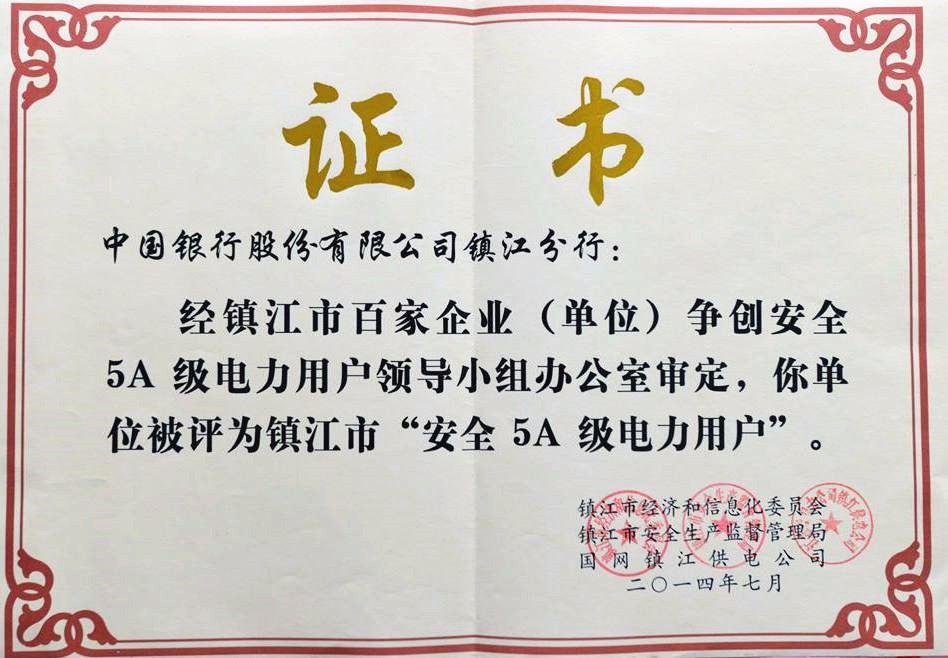 证书
中国银行股份有限公司镇江分行：
经镇江市百家企业（单位）争创安全
5A 级电力用户领导小组办公室审定，你单
位被评为镇江市“安全 5A 级电力用户”。
镇江市经济和信息化委员会
镇江市安全生产监督管理局
国网镇江供电公司
二〇一四年七月